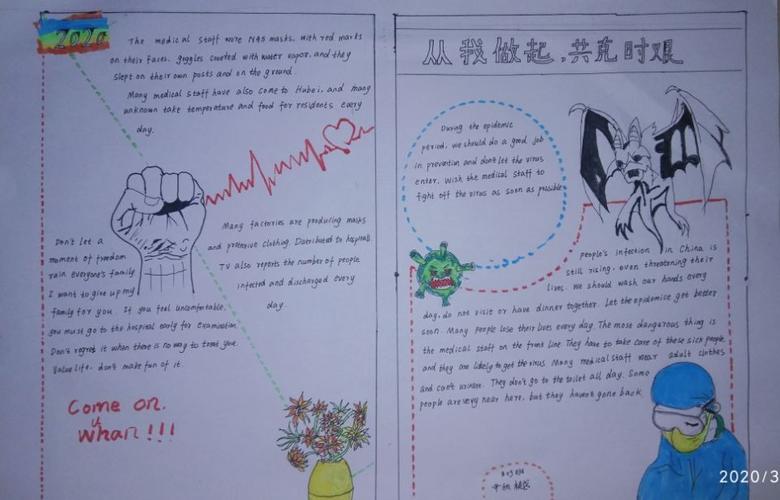 2020
The medical staff wore N95 masks, with red marks
on their faces, goggles covered with water vapor, and they
slept on their own posts and on the ground.
Many medical staff have also come to Hubei, and many
unknown take temperature and food for residents every
day.
Many factories are producing masks
and protective clothing. Distributed to hospitals
TV also reports the number of people
infected and discharged every
day.
Don't let a
moment of freedom
ruin everyone's family
I want to give up my
family for you. If you feel uncomfortable,
you must go to the hospital early for examination.
Don't regret it when there is no way to treat you.
Value life, don't make fun of it.
Come on.
Whan!!!
u
从我做起,共克时艰
During the epidemic
period, we should do a good job
in prevention and don't let the virus
enter. Wish the medical staff to
fight off the virus as soon as possible
people's infection in China is
still rising, even threatening their
lives. We should wash our hands every
day, do not visit or have dinner together. Let the epidemic get better
soon. Many people lose their lives every day. The most dangerous thing is
the medical staff on the front line They have to take care of these sick people.
and they are likely to get the virus. Many medical staff wear adult clothes
and can't urinate. They don't go to the toilet all day. Some
people are very near here, but they haven't gone back.
2020/3